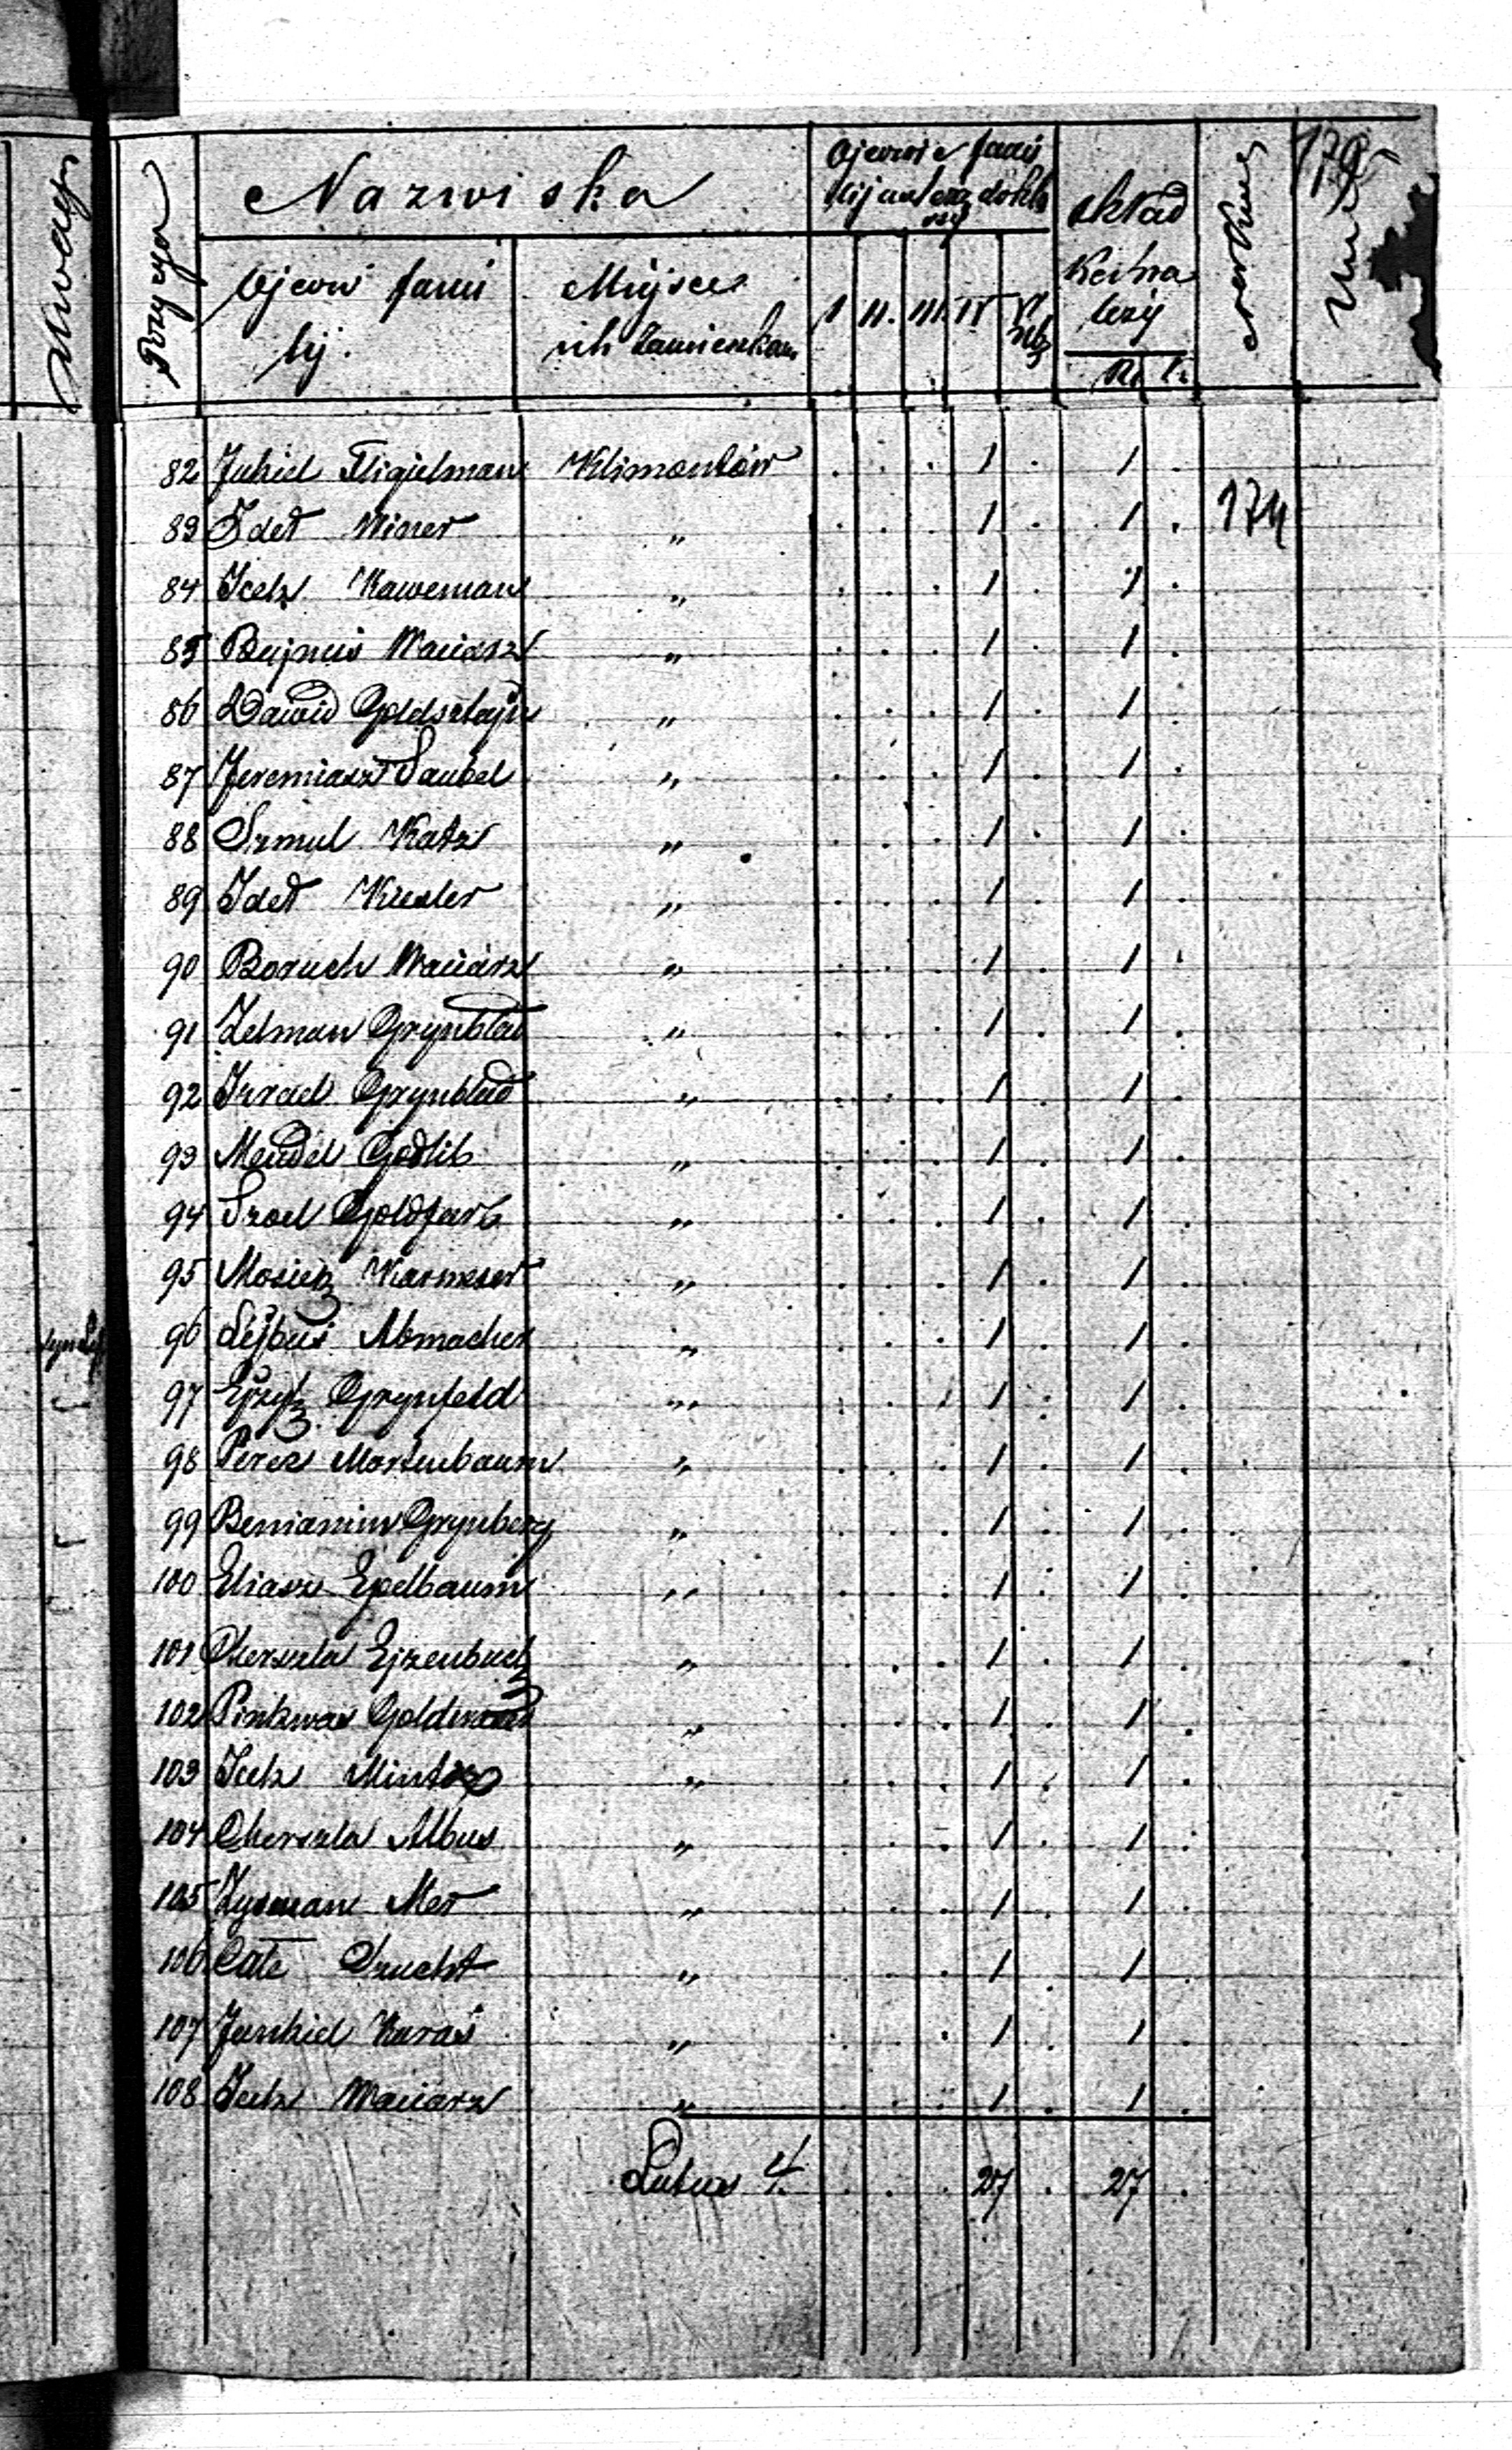 Nazwiska
Pozycya
Ojcow fami
lij.
Miejsce
ich Zamieszkan
I II. III. IV
skład
Ks. k.
82 Juhiel Fligielman Klimontów . . . 1 . 1 .
83 Idel Winer „ . . . 1 . 1 . 174
84 Icek Kaweman „ . . . 1 . 1 .
85 Bajnis Waciarz „ . . . 1 . 1 .
86 Dawid Goldsztajn „ . . . 1 . 1 .
87 Jeremiasz Taubel „ . . . 1 . 1 .
88 Szmul Katz „ . . . 1 . 1 .
89 Idel Kiesler „ . . . 1 . 1 .
90 Boruch Waciarz „ . . . 1 . 1 .
91 Zelman Grynblad „ . . . 1 . 1 .
92 Israel Grynblad „ . . . 1 . 1 .
93 Mendel Godlib „ . . . 1 . 1 .
94 Srael Goldfarb „ . . . 1 . 1 .
95 Mosiek Karmeser „ . . . 1 . 1 .
96 Lejbuś Abmacher „ . . . 1 . 1 .
97 Grynfeld „ . . . 1 . 1 .
98 Perec Mortenbaum „ . . . 1 . 1 .
99 Beniamin Grynberg „ . . . 1 . 1 .
100 Eliasz Epelbaum „ . . . 1 . 1 .
101 Herszla Ejzenbuch „ . . . 1 . 1 .
102 Pinkwas „ . . . 1 . 1 .
103 Icek „ . . . 1 . 1 .
104 Cherszla Albus „ . . . 1 . 1 .
105 Zysman Mer „ . . . 1 . 1 .
106 Cale „ . . . 1 . 1 .
107 Jankiel Karaś „ . . . 1 . 1 .
108 Icek Waciarz „ . . . 1 . 1 .
Latus 4 . . . 27 . 27 .